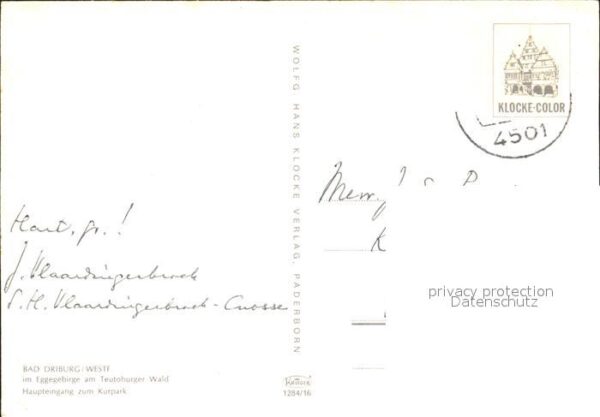 Hart. gr.!
J. Vlaardingerbroek
S. H. Vlaardingerbroek-Cnosse
BAD DRIBURG/WESTF
im Eggegebirge am Teutoburger Wald
Haupteingang zum Kurpark
WOLFG. HANS KLOCKE VERLAG, PADERBORN
1284/16
KLOCKE-COLOR
4501
K
privacy protection
Datenschutz